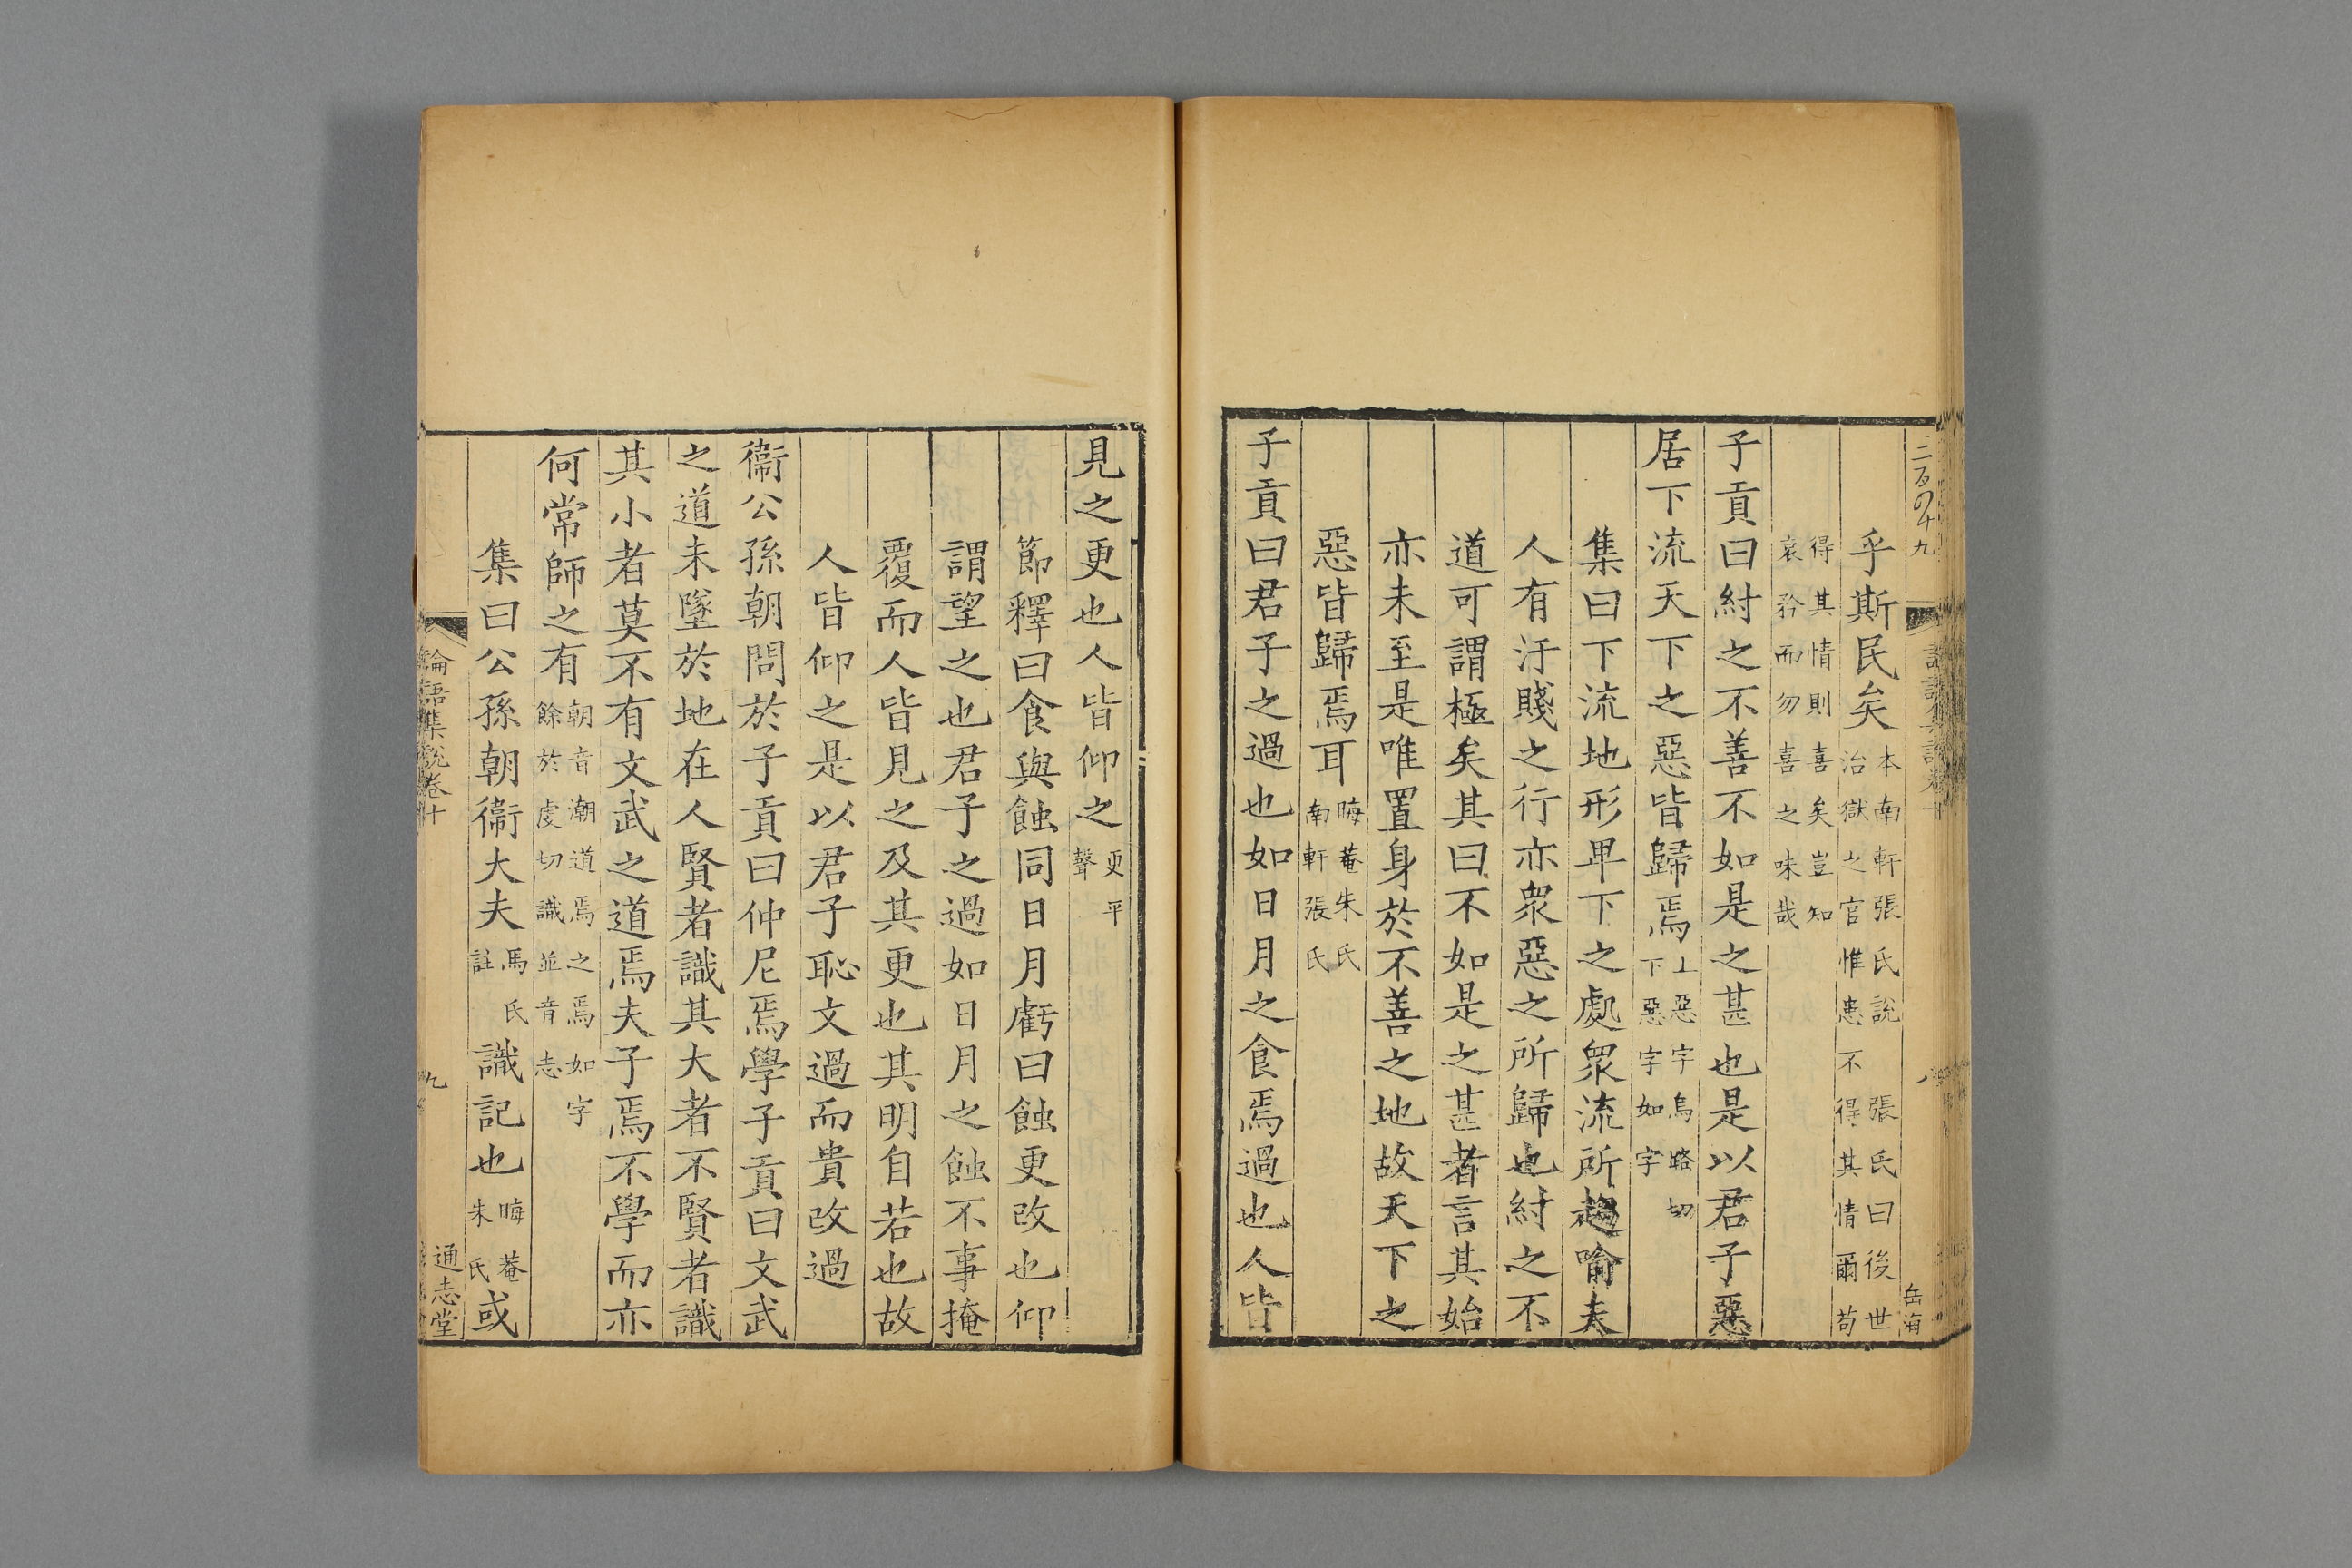 二百四十九
岳海
乎斯民矣本南軒張氏說 張氏曰後世治獄之官惟患不得其情爾苟
得其情則喜矣豈知哀矜而勿喜之味哉
子貢曰紂之不善不如是之甚也是以君子惡
居下流天下之惡皆歸焉上惡字烏路切下惡字如字
集曰下流地形卑下之處衆流所趨喻夫
人有汙賤之行亦衆惡之所歸也紂之不
道可謂極矣其曰不如是之甚者言其始
亦未至是唯置身於不善之地故天下之
惡皆歸焉耳晦菴朱氏南軒張氏
子貢曰君子之過也如日月之食焉過也人皆
見之更也人皆仰之更平聲
節釋曰食與蝕同日月虧曰蝕更改也仰
謂望之也君子之過如日月之蝕不事掩
覆而人皆見之及其更也其明自若也故
人皆仰之是以君子恥文過而貴改過
衞公孫朝問於子貢曰仲尼焉學子貢曰文武
之道未墜於地在人賢者識其大者不賢者識
其小者莫不有文武之道焉夫子焉不學而亦
何常師之有朝音潮道焉之焉如字餘於虔切識並音志
集曰公孫朝衞大夫馬氏註識記也晦菴朱氏或
論語集說卷十
九
通志堂